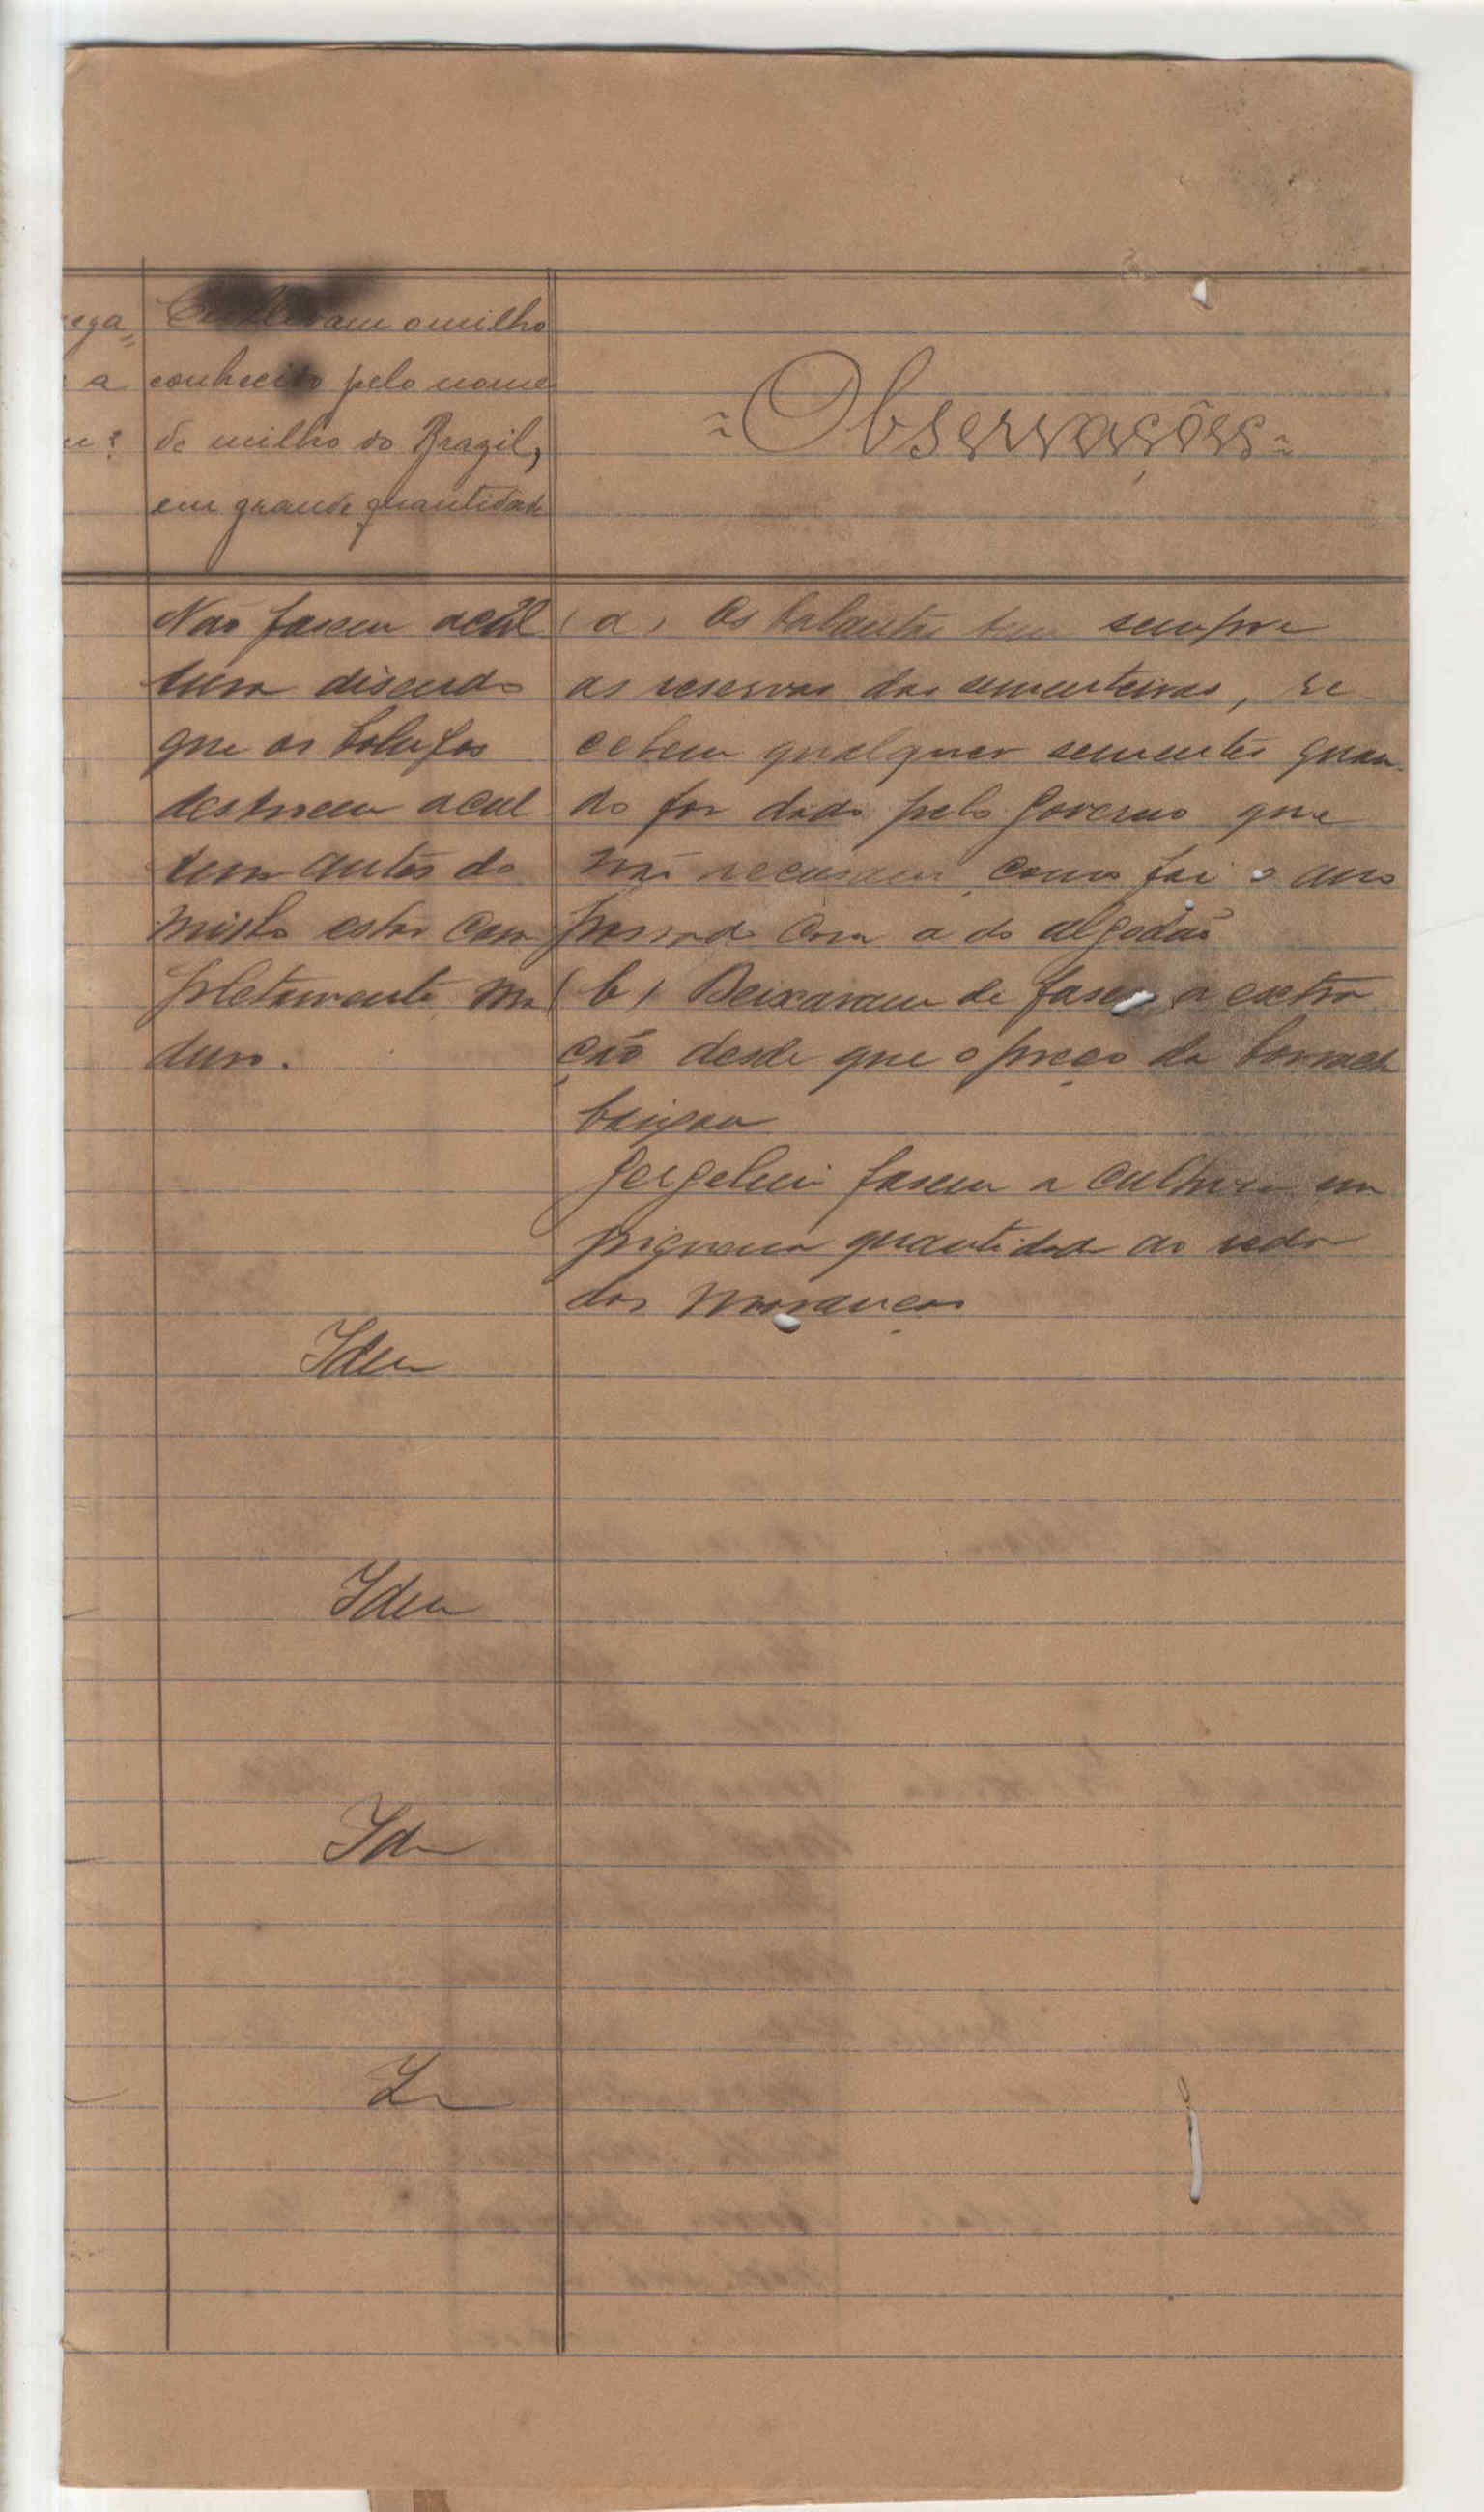 ega=
a
Cultivam o milho
conhecido pelo nome
de milho do Brazil,
em grande quantidade
~ Observações ~
Não fasem a cul
tura disendo
que os
destroem a cul
tura antes do
milho estar com
pletamente ma
duro.
Idem
Idem
Idem
(a) Os balantas tem sempre
as reservas das sementeiras, re
cebem qualquer sementes quan
do for dado pelo Governo que
não recusam, como foi o ano
passado com a do algodão
(b) Deixaram de faser a extra
ção desde que o preço da borracha
baixou
Gergelim fasem a cultura em
piquena quantidade ao redor
das moranças